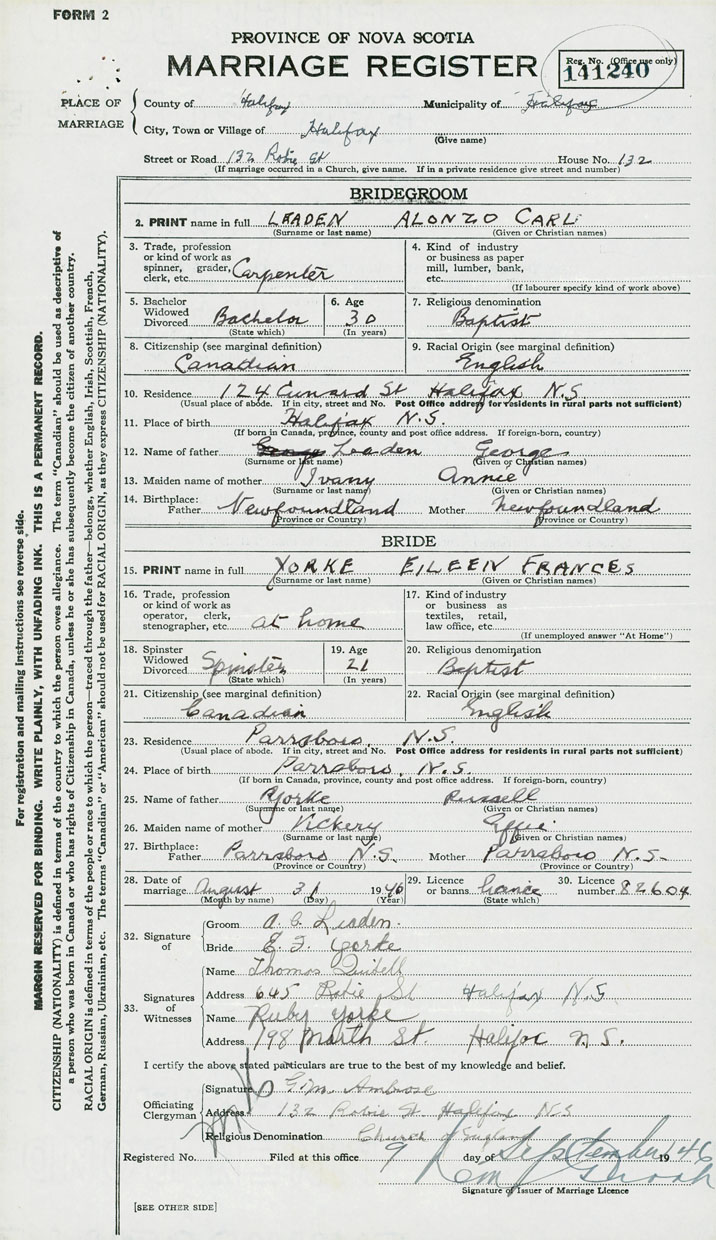 FORM 2
PROVINCE OF NOVA SCOTIA
MARRIAGE REGISTER
Reg. No. (Office use only)
141240
PLACE OF MARRIAGE
County of Halifax Municipality of Halifax
City, Town or Village of Halifax
(Give name)
Street or Road 132 Robie St House No. 132
(If marriage occurred in a Church, give name. If in a private residence give street and number)
BRIDEGROOM
2. PRINT name in full LEADEN ALONZO CARL
(Surname or last name) (Given or Christian names)
3. Trade, profession or kind of work as spinner, grader, clerk, etc. Carpenter
4. Kind of industry or business as paper mill, lumber, bank, etc.
(If labourer specify kind of work above)
5. Bachelor Widowed Divorced Bachelor (State which)
6. Age 30 (In years)
7. Religious denomination Baptist
8. Citizenship (see marginal definition) Canadian
9. Racial Origin (see marginal definition) English
10. Residence 124 Cunard St Halifax N.S
(Usual place of abode. If in city, street and No. Post Office address for residents in rural parts not sufficient)
11. Place of birth Halifax N.S.
(If born in Canada, province, county and post office address. If foreign-born, country)
12. Name of father Leaden George
(Surname or last name) (Given or Christian names)
13. Maiden name of mother Ivany Annie
(Surname or last name) (Given or Christian names)
14. Birthplace: Father Newfoundland Mother Newfoundland
(Province or Country) (Province or Country)
BRIDE
15. PRINT name in full YORKE EILEEN FRANCES
(Surname or last name) (Given or Christian names)
16. Trade, profession or kind of work as operator, clerk, stenographer, etc. at home
17. Kind of industry or business as textiles, retail, law office, etc.
(If unemployed answer "At Home")
18. Spinster Widowed Divorced Spinster (State which)
19. Age 21 (In years)
20. Religious denomination Baptist
21. Citizenship (see marginal definition) Canadian
22. Racial Origin (see marginal definition) English
23. Residence Parrsboro, N.S.
(Usual place of abode. If in city, street and No. Post Office address for residents in rural parts not sufficient)
24. Place of birth Parrsboro, N.S.
(If born in Canada, province, county and post office address. If foreign-born, country)
25. Name of father Yorke Russell
(Surname or last name) (Given or Christian names)
26. Maiden name of mother Vickery Effie
(Surname or last name) (Given or Christian names)
27. Birthplace: Father Parrsboro N.S. Mother Parrsboro N.S.
(Province or Country) (Province or Country)
28. Date of marriage August 31 1946
(Month by name) (Day) (Year)
29. Licence or banns licence (State which)
30. Licence number 82604
32. Signature of
Groom A. C. Leaden.
Bride E. F. Yorke
33. Signatures of Witnesses
Name Thomas Quibell
Address 645 Robie St Halifax N.S
Name Ruby Yorke
Address 198 North St. Halifax N.S.
I certify the above stated particulars are true to the best of my knowledge and belief.
Officiating Clergyman
Signature G. M. Ambrose
Address 132 Robie St. Halifax NS
Religious Denomination Church of England
Registered No. Filed at this office 9 day of September 1946
Signature of Issuer of Marriage Licence
[SEE OTHER SIDE]
For registration and mailing instructions see reverse side.
MARGIN RESERVED FOR BINDING. WRITE PLAINLY, WITH UNFADING INK. THIS IS A PERMANENT RECORD.
CITIZENSHIP (NATIONALITY) is defined in terms of the country to which the person owes allegiance. The term "Canadian" should be used as descriptive of
a person who was born in Canada or who has rights of Citizenship in Canada, unless he or she has subsequently become the citizen of another country.
RACIAL ORIGIN is defined in terms of the people or race to which the person—traced through the father—belongs, whether English, Irish, Scottish, French,
German, Russian, Ukrainian, etc. The terms "Canadian" or "American" should not be used for RACIAL ORIGIN, as they express CITIZENSHIP (NATIONALITY).